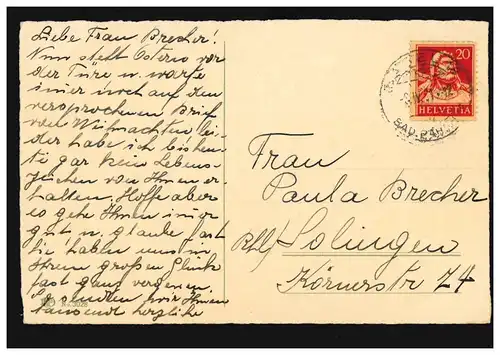 Liebe Frau Brecher!
Nun steht Ostern vor
der Türe u. warte
immer noch auf den
versprochenen Brief
von Weihnachten lei-
der habe ich bis heu-
te gar kein Lebens-
zeichen von Ihnen er-
halten. Hoffe aber
es gehe Ihnen immer
gut u. glaube fast
Sie haben uns in
Ihrem großen Glück
fast ganz vergessen.
senden wir Ihnen
tausend herzliche
No. 3028
20
HELVETIA
BAD.BAH
Frau
Paula Brecher
Rhl/ Solingen
Körnerstr 74